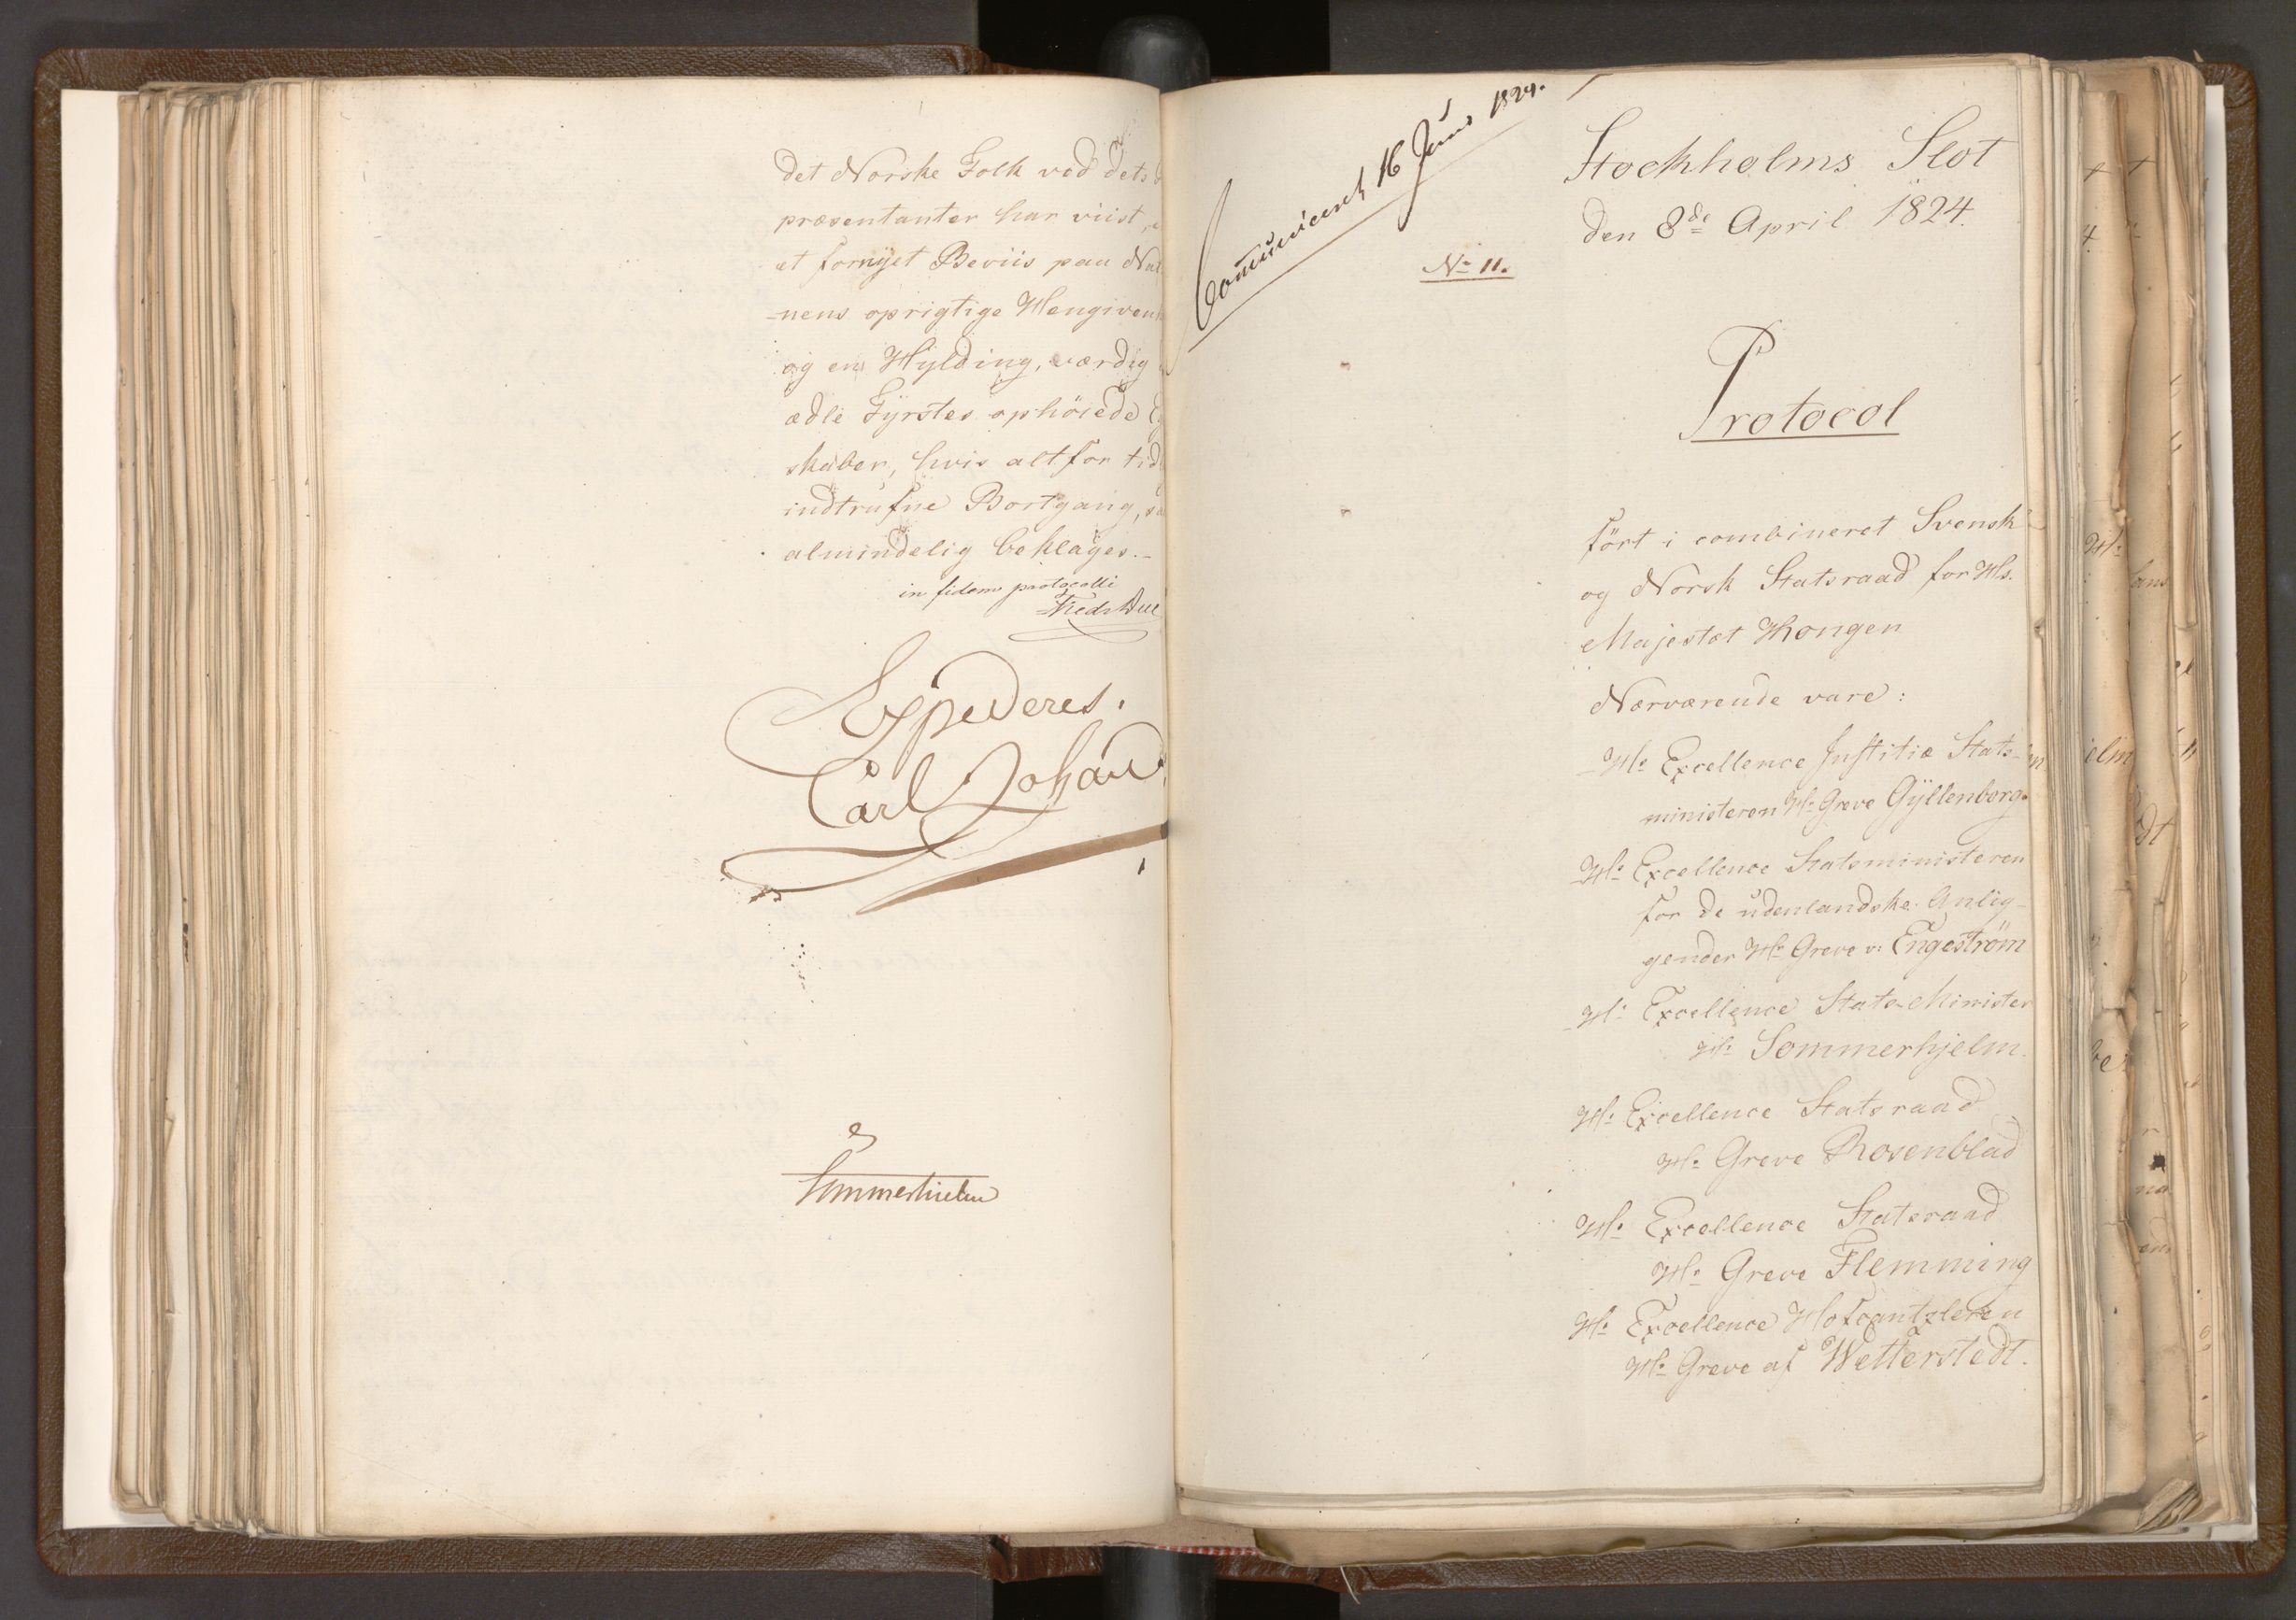 det Norske Folk ved dets
præsentanter har viist,
et fornÿet Beviis paa Nat
-nens oprigtige Hengiven
og en Hÿlding, værdig
ædle Fÿrstes ophöiede
skaber, hvis altfor tid
indtrufne Bortgang,
almindelig beklages.-
in fidem protocolli
Fred. Due
Expederes.
Carl Johan
Sommerhielm
Communiceret 16 Juni 1824.
Stockholms Slot
den 8de April 1824.
No 11.
Protocol
fört i combineret Svensk
og Norsk Statsraad for Hs.
Majestæt Kongen
Nærværende vare:
Hs Excellence Justitiæ Stats-
ministeren Hr Greve Gÿllenborg.
Hs Excellence Statsministeren
for de udenlandske Anlig-
gender Hr Greve v: Engeström
Hs Excellence Stats-Minister
Hr Sommerhjelm.
Hs Excellence Statsraad
Hr Greve Rosenblad
Hs Excellence Statsraad
Hr Greve Flemming
Hs Excellence Hofcantzleren
Hr Greve af Wetterstedt.